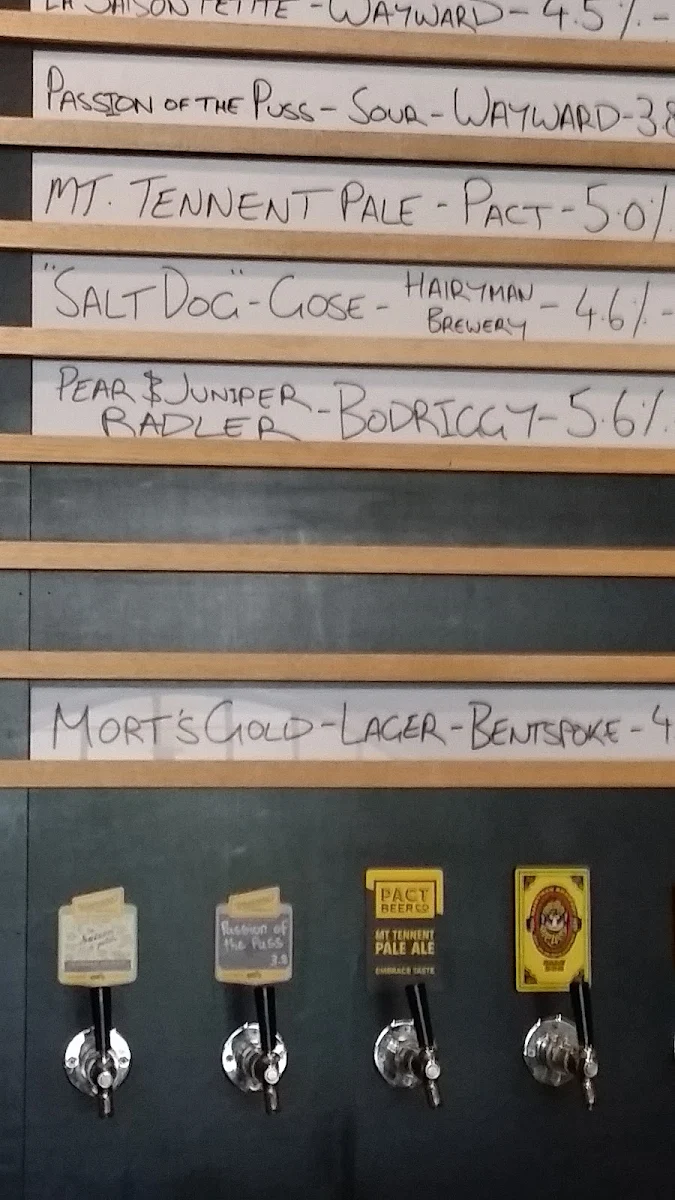 LA SAISON PETITE - WAYWARD - 4.5% -
PASSION OF THE PUSS - SOUR - WAYWARD - 3.8
MT. TENNENT PALE - PACT - 5.0%
"SALT DOG" - GOSE - HAIRYMAN BREWERY - 4.6% -
PEAR & JUNIPER RADLER - BODRIGGY - 5.6%.
MORT'S GOLD - LAGER - BENTSPOKE - 4
Passion of
the Puss
3.8
PACT
BEER CO
MT TENNENT
PALE ALE
EMBRACE TASTE